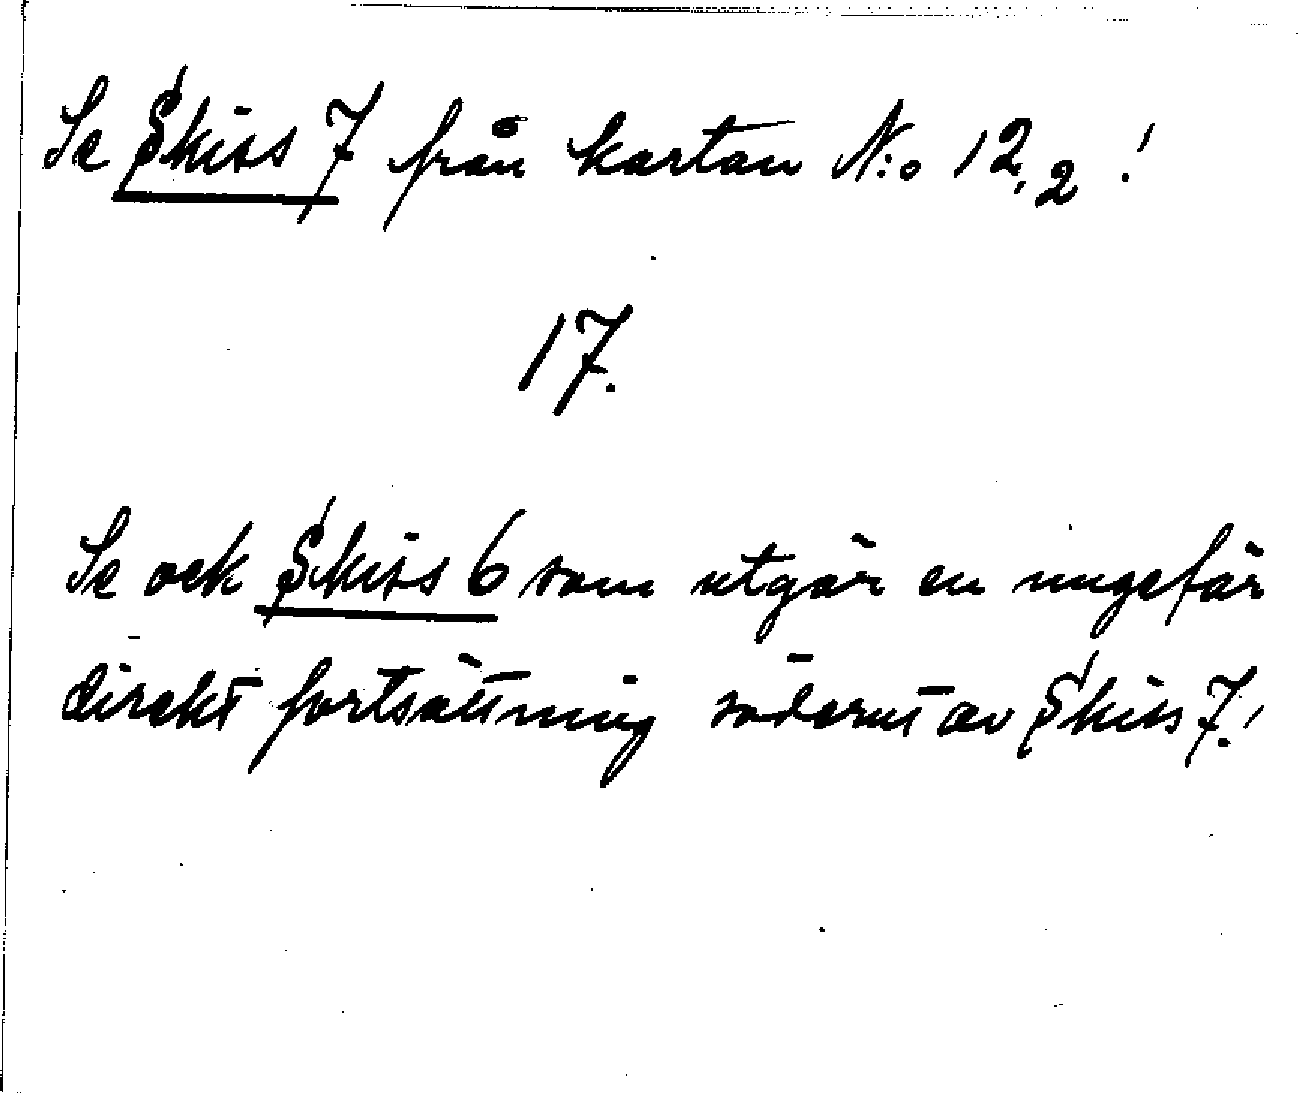 Se Skiss 7 från kartan N:o 12,2 !
17.
Se ock Skiss 6 som utgör en ungefär
direkt fortsättning söderut av Skiss 7.!